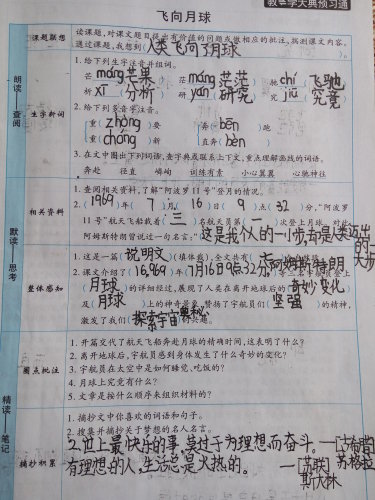 教学大典预习通
飞向月球
课题联想
读课题,对课文题目提出有价值的问题或做相应的批注,揣测课文内容。
通过课题,我想到(人类飞向了月球
朗读——查阅
生字新词
1. 给下列生字注音并组词。
芒 máng 芒果 茫 máng 茫茫 驰 chí 飞驰
析 xī 分析 研 yán 研究 究 jiū 究竟
2. 给下列多音字注音。
重 (zhòng)要 奔 直奔(bèn) 奔(bēn)跑
(chóng)新
3. 在文中圈出下列词语,查字典或联系上下文,重点理解画线的词语。
奔赴 径直 崎岖 训练有素 小心翼翼 心驰神往
默读——思考
相关资料
1. 查阅相关资料,了解“阿波罗 11 号”登月的情况。
2. (1969)年(7)月(16)日(9)点(32)分,“阿波罗
11 号”航天飞船载着(三)名航天员第(一)次登上月球。
阿姆斯特朗曾说过一句名言:“这是我个人的一小步,却是人类迈出的一大步
整体感知
1. 这是一篇(说明文)(填体裁),全文共有
2. 课文介绍了(1969年7月16日9点32分 阿姆斯特朗
(月球)的详细经过,展现了人类在离开地球后的(奇妙变化
及(月球)上的神奇景象,赞扬了宇航员们(坚强)的精神,
激发了我们(探索宇宙奥秘)的兴趣。
圈点批注
1. 开篇交代了航天飞船奔赴月球的精确时间,这表明了什么?
2. 离开地球后,宇航员感到身体发生了什么奇妙的变化?
3. 宇航员在太空中是如何睡觉、吃饭的?
4. 月球上究竟有什么?
5. 文章是按什么顺序来组织材料的?
精读——笔记
摘抄积累
1. 摘抄文中你喜欢的词语和句子。
2. 搜集并摘抄关于梦想的名人名言。
2. 世上最快乐的事,莫过于为理想而奋斗。——[古希腊]苏格拉
有理想的人,生活总是火热的。——[苏联]斯大林